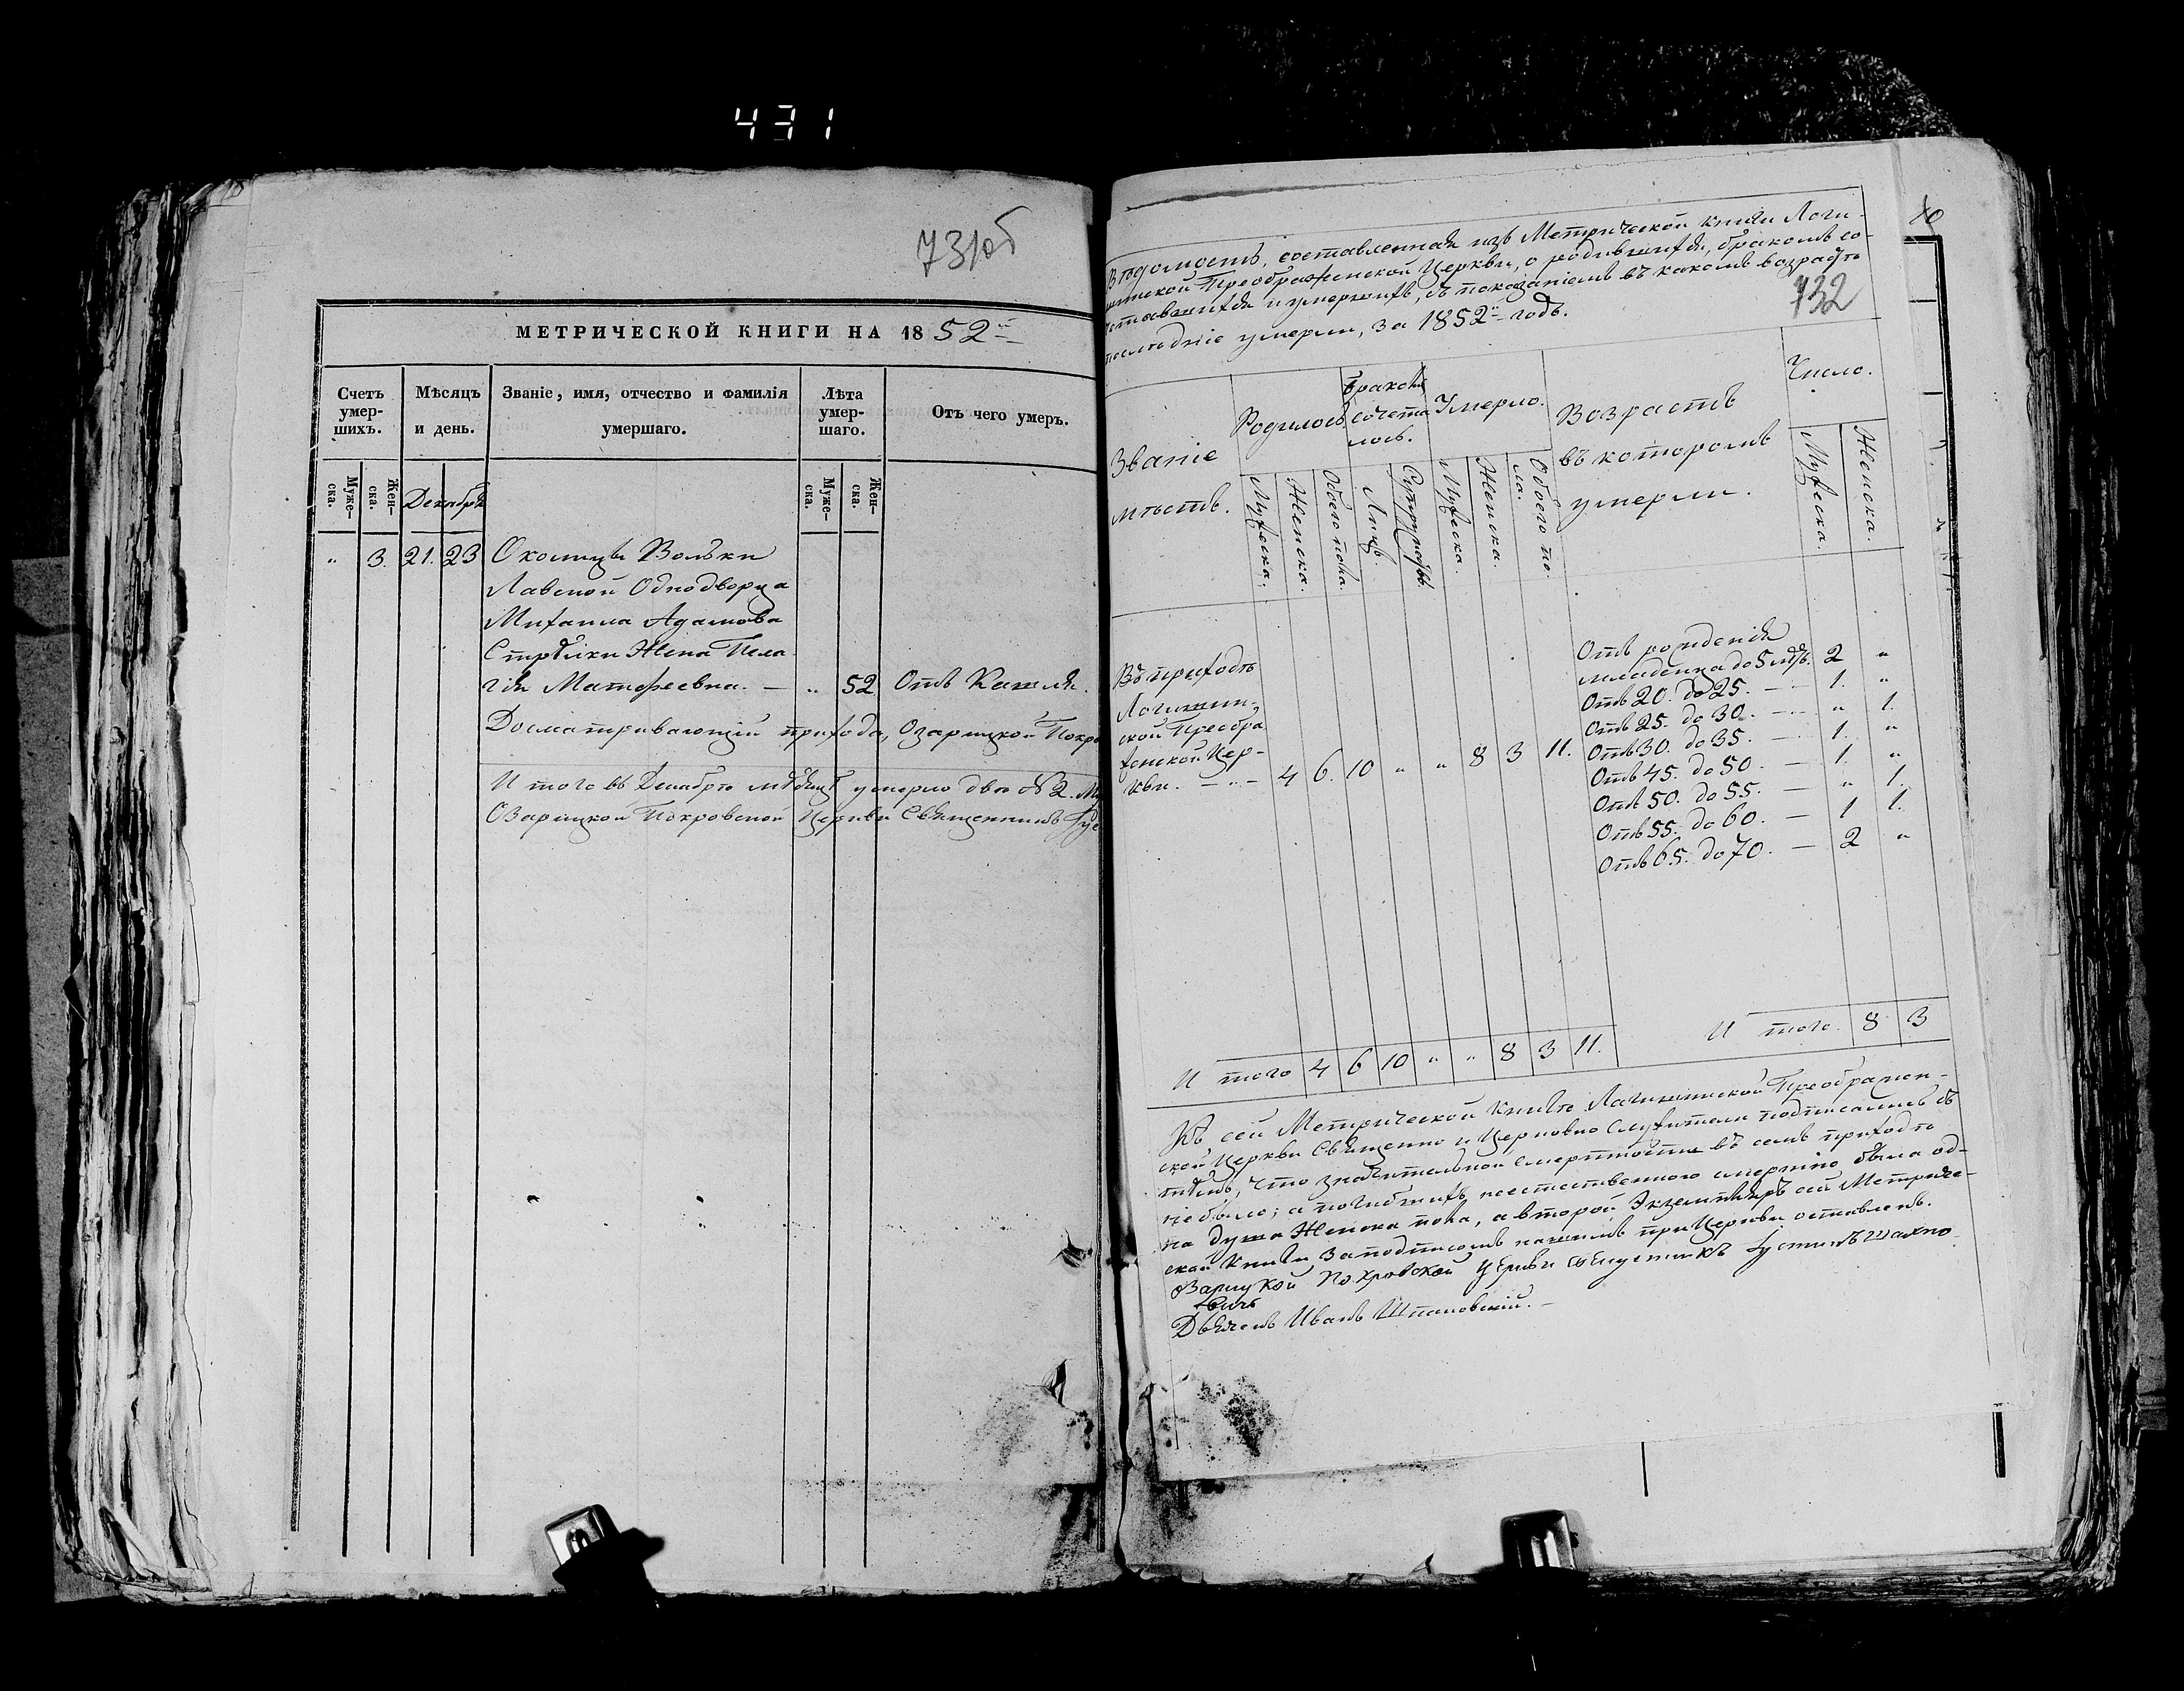 431
731об
МЕТРИЧЕСКОЙ КНИГИ НА 1852й
Счетъ умер-шихъ.
Мѣсяцъ и день.
Званіе, имя, отчество и фамилія умершаго.
Лѣта умер-шаго.
Отъ чего умеръ.
Муже-ска.
Жен-ска.
Декабря
Муже-ска.
Жен-ска.
" 3. 21. 23 Околицы Вольки
Лавской Однодворца
Михаила Адамова
Стрѣлки Жена Пела
гія Матѳеевна. — " 52 Отъ Кашля.
Досматривающій прихода, Озарицкой Покро
И того въ Декабрѣ мѣсяцѣ умерло двѣ об 2. Му
Озарицкой Покровской Церкви Священникъ Іус
732
Вѣдомость, составленная изъ Метрической книги Логи-
шинской Преображенской Церкви, о родившихся, бракомъ со-
четавшихся и умершихъ, съ показаніемъ въ какомъ возрастѣ
послѣдніе умерли, за 1852й годъ.
Званіе мѣстъ.
Родилось
Бракомъ сочета лось.
Умерло.
Возрастъ въ которомъ умерли.
Число.
Мужеска.
Женска.
Обоего пола.
Лицъ.
Супружествъ.
Мужеска.
Женска.
Обоего по-ла.
Мужеска.
Женска.
Въ приходѣ
Логишин-
ской Преобра
женской Цер-
кви. — " — 4 6. 10 " " 8 3 11.
Отъ рожденія
младенца до 5 лѣтъ. 2 "
Отъ 20. до 25. — 1. "
Отъ 25. до 30. — " 1.
Отъ 30. до 35. — 1. "
Отъ 45. до 50. — 1. "
Отъ 50. до 55. — " 1.
Отъ 55. до 60. — 1 1.
Отъ 65. до 70. — 2 "
И того 4 6 10 " " 8 3 11.
И того. 8 3
Къ сей Метрической Книгѣ Логишинской Преображен-
ской Церкви Священно и Церковно Служители подписались съ
тѣмъ, что значительной смертности въ семъ приходѣ
не было; а погибшихъ неестественною смертію была од-
на душа Женска пола, а второй Экземпляръ сей Метриче-
ской Книги За подписомъ нашимъ при Церкви оставленъ.
Озарицкой Покровской Церкви священникъ Іустинъ Махно
вичъ
Дьячекъ Иванъ Шпаковскій. —